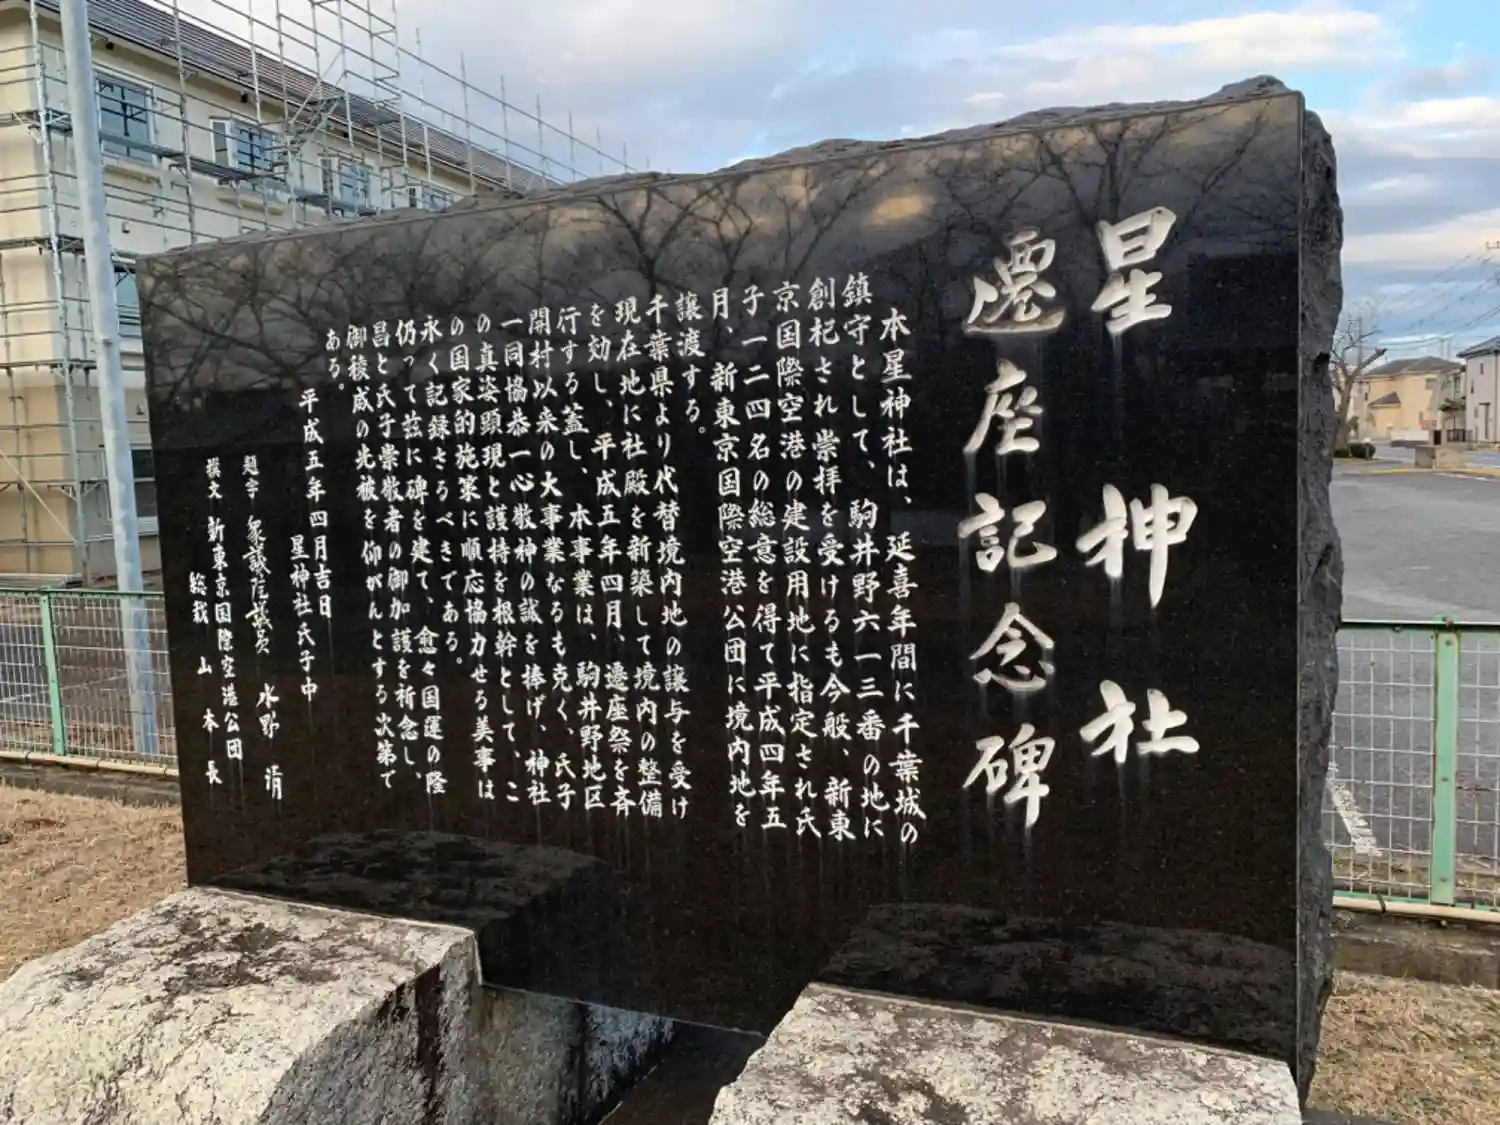 星神社
遷座記念碑
本星神社は、延喜年間に千葉城の
鎮守として、駒井野六一三番の地に
創杞され崇拝を受けるも今般、新東
京国際空港の建設用地に指定され氏
子一二四名の総意を得て平成四年五
月、新東京国際空港公団に境内地を
譲渡する。
千葉県より代替境内地の譲与を受け
現在地に社殿を新築して境内の整備
を効し、平成五年四月、遷座祭を斉
行する蓋し、本事業は、駒井野地区
開村以来の大事業なるも克く、氏子
一同協恭一心敬神の誠を捧げ、神社
の真姿顕現と護持を根幹として、こ
の国家的施策に順応協力せる美事は
永く記録さるべきである。
仍って茲に碑を建て、愈々国運の隆
昌と氏子崇敬者の御加護を祈念し、
御稜威の光被を仰がんとする次第で
ある。
平成五年四月吉日
星神社氏子中
題字 衆議院議員 水野 清
撰文 新東京国際空港公団
総裁 山本 長